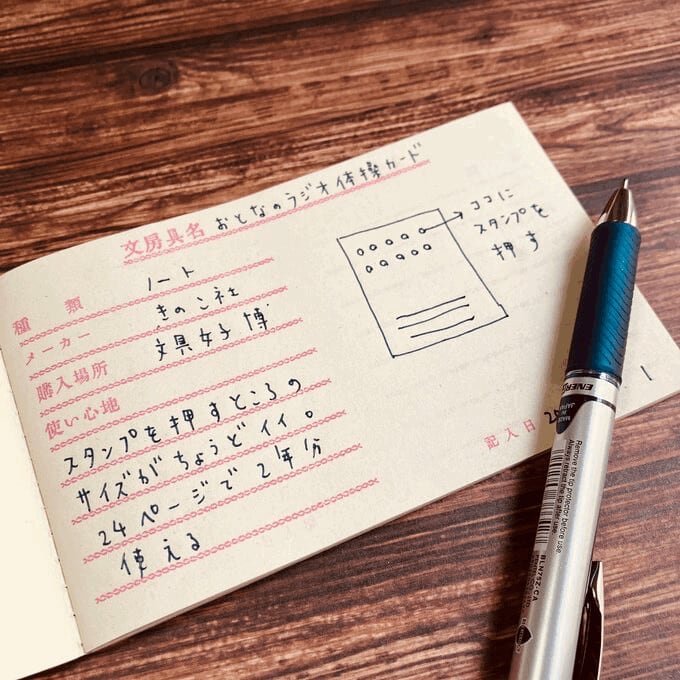 文房具名 おとなのラジオ体操カード
種類 ノート
メーカー きのこ社
購入場所 文具女子博
使い心地
スタンプを押すところの
サイズがちょうどイイ。
24ページで2年分
使える
ココに
スタンプを
押す
記入日 20
1
ENER
MADE IN JAPAN
Remove the tip protector before use.
Always retract the tip after use.
BLN75Z-CA